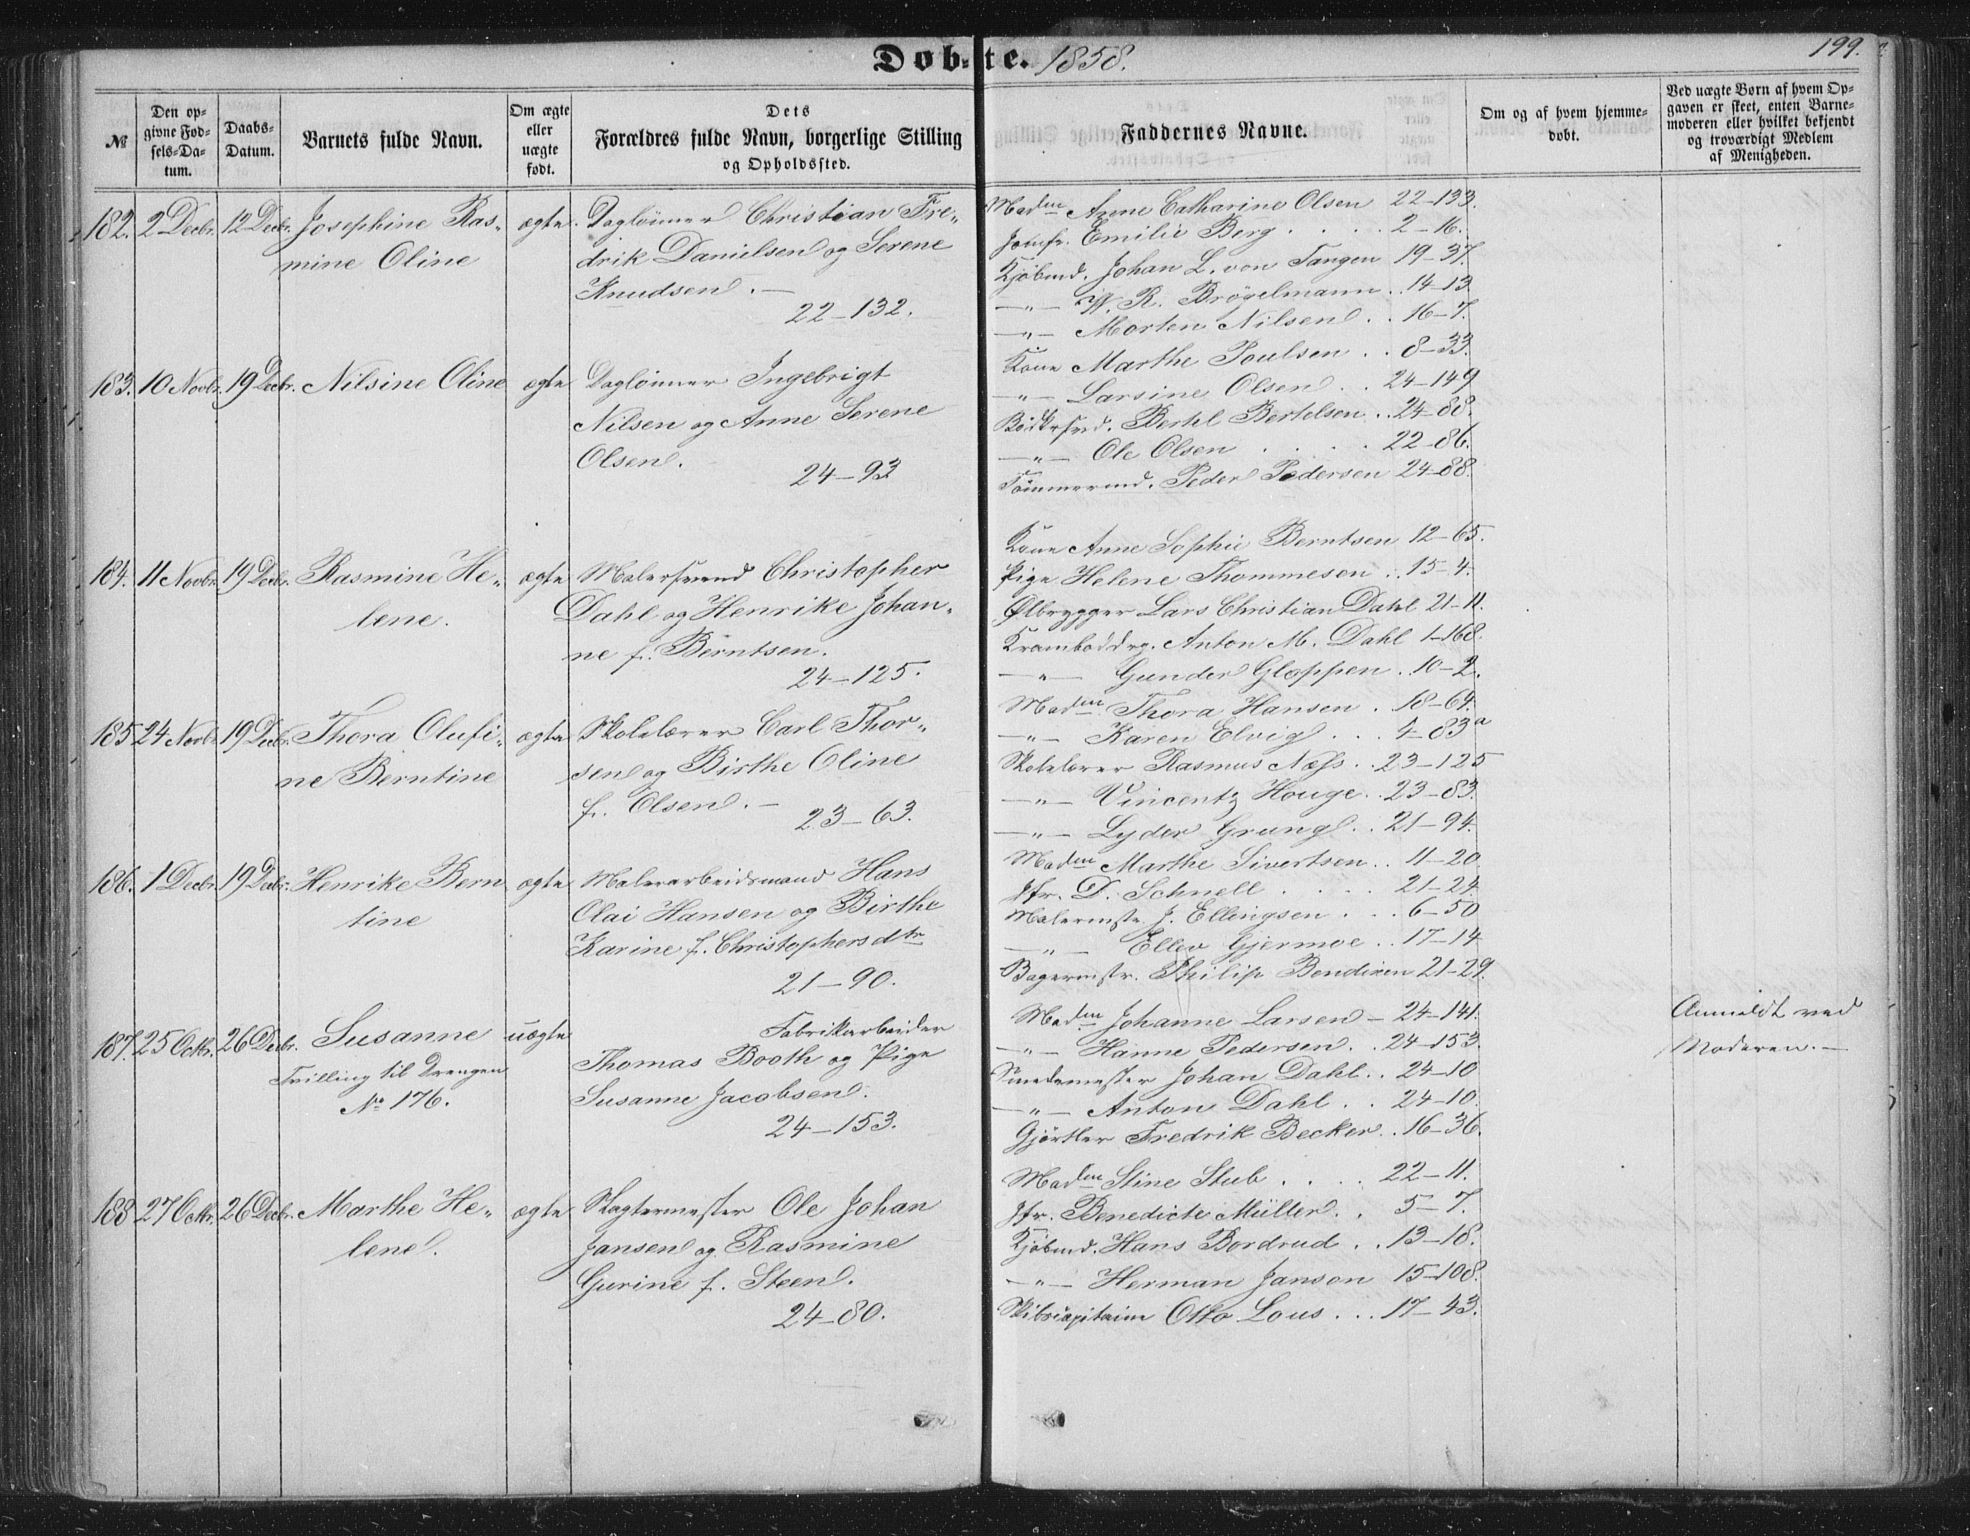 Døb-te. 1858.
199.
№
Den opgivne Fødsels-Datum.
Daabs-Datum.
Barnets fulde Navn.
Om ægte eller uægte født.
Dets
Forældres fulde Navn, borgerlige Stilling
og Opholdssted.
Faddernes Navne.
Om og af hvem hjemmedøbt.
Ved uægte Børn af hvem Op-
gaven er skeet, enten Barne-
moderen eller hvilket bekjendt
og troværdigt Medlem
af Menigheden.
182. 2 Decbr. 12 Decbr. Josephine Ras-
mine Oline
ægte.
Daglønner Christian Fre-
drik Danielsen og Serene
Knudsen. —
22–132.
Madm Anne Catharine Olsen 22–133.
Jomfr. Emilie Berg . . . . 2–16.
Kjøbmd. Johan L. von Tangen 19–37.
—„— W. R. Brögelmann . 14–13
—„— Morten Nilsen . . 16–7.
183. 10 Novbr. 19 Decbr. Nilsine Oline
ægte
Daglønner Ingebrigt
Nilsen og Anne Serene
Olsen.
24–93
Kone Marthe Poulsen . . 8–33.
—„— Larsine Olsen . . 24–149
Bødkersvd. Berthl Bertelsen . . 24–88.
—„— Ole Olsen . . . . 22–86.
Tømmermd. Peder Pedersen 24–88.
184. 11 Novbr. 19 Decbr. Rasmine He-
lene.
ægte
Malersvend Christopher
Dahl og Henrike Johan-
ne f. Berntsen.
24–125.
Kone Anne Sophie Berntsen 12–65.
Pige Helene Thommesen . . 15–4.
Ølbrygger Lars Christian Dahl 21–11.
Kramboddrg. Anton M. Dahl 1–168.
—„— Gunder Gloppen . 10–2.
185 24 Novbr. 19 Decbr. Thora Olufi-
ne Berntine
ægte
Skolelærer Carl Thor-
sen og Birthe Oline
f. Olsen. —
23–63.
Madm Thora Hansen . 18–64.
—„— Karen Elvig . . . 4–83a
Skolelærer Rasmus Næss . . 23–125
—„— Vincentz Houge . . 23–83.
—„— Lyder Grung . . 21–94.
186. 1 Decbr. 19 Decbr. Henrike Bern
tine
ægte
Malerarbeidsmand Hans
Olai Hansen og Birthe
Karine f. Christophersdtr
21–90.
Madm Marthe Sivertsen . . 11–20
Jfr. D. Schnell . . . . 21–24
Malermstr. J. Ellingsen . . . 6–50
—„— Ellev Gjermoe . . 17–14
Bagermstr. Philip Bendixen 21–29.
187. 25 Octbr. 26 Decbr. Susanne
Tvilling til Drengen
No 176.
uægte
Fabrikarbeider
Thomas Booth og Pige
Susanne Jacobsen.
24–153.
Madm Johanne Larsen – 24–141.
—„— Hanne Pedersen . . 24–153.
Smedemester Johan Dahl . . 24–10
—„— Anton Dahl . . 24–10.
Gjørtler Fredrik Becker . . 16–36.
Anmeldt ved
Moderen. —
188 27 Octbr. 26 Decbr. Marthe He-
lene.
ægte
Slagtermester Ole Johan
Jansen og Rasmine
Gurine f. Steen.
24–80.
Madm Stine Stub . . . . 22–11.
Jfr. Benedicte Müller . . 5–7.
Kjøbmd. Hans Bordrud . . 13–18.
—„— Herman Janson 15–108.
Skibscapitain Otto Lous . . . 17–43.